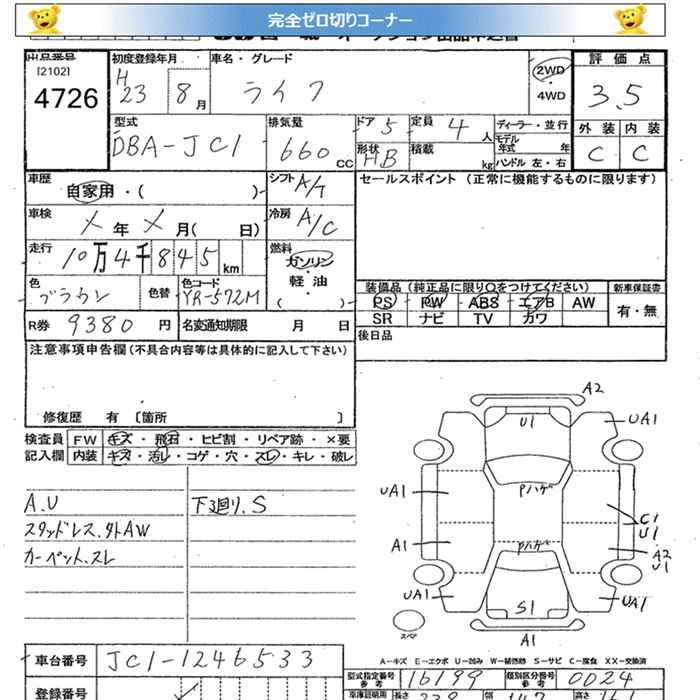 完全ゼロ切りコーナー
出品番号
[2102]
4726
初度登録年月
H 23 8 月
車名・グレード
ライフ
2WD
・
4WD
評価点
3.5
外装 内装
C C
型式
DBA-JC1
排気量
660 CC
ドア 5
形状 HB
定員 4 人
積載 kg
ディーラー・並行
モデル年式 年
ハンドル 左・右
車歴
自家用・( )
シフト A/T
セールスポイント (正常に機能するものに限ります)
車検
メ 年 メ 月( 日)
冷房 A/C
走行
10万4千845 km
燃料
ガソリン
軽・油
色
ブラウン
色替
色コード
YR-572M
装備品 (純正品に限り○をつけてください)
新車保証書
PS PW ABS エアB AW
SR ナビ TV カワ
有・無
R券 9380 円
名変通知期限 月 日
後日品
注意事項申告欄(不具合内容等は具体的に記入して下さい)
修復歴 有 〔箇所 〕
検査員 FW キズ・飛石・ヒビ割・リペア跡・×要
記入欄 内装 キズ・汚レ・コゲ・穴・スレ・キレ・破レ
A.U
下廻り.S
スタッドレス.外AW
カーペット.スレ
A2
U1
UA1
UA1
Pハゲ
UA1
C1
U1
A1
Pハゲ
A2
U1
UA1
S1
UA1
A1
スペア
A-キズ E-エクボ U-凹み W-補修跡 S-サビ C-腐食 XX-交換済
車台番号 JC1-1246533
型式指定番号 参考 16199
類別区分番号 参考 0024
登録番号
車庫証明用 参考
長さ
幅
高さ